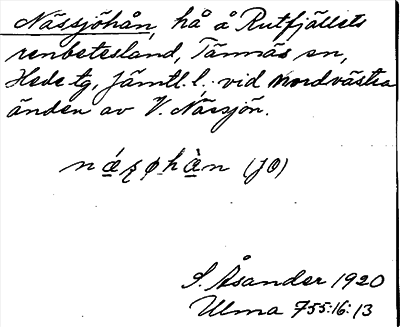 Nässjöhån, hå å Rutfjällets
renbetesland, Tännäs sn,
Hede tg, Jämtl. l. vid nordvästra
änden av V. Nässjön.
(JO)
S. Åsander 1920
Ulma 755:16:13